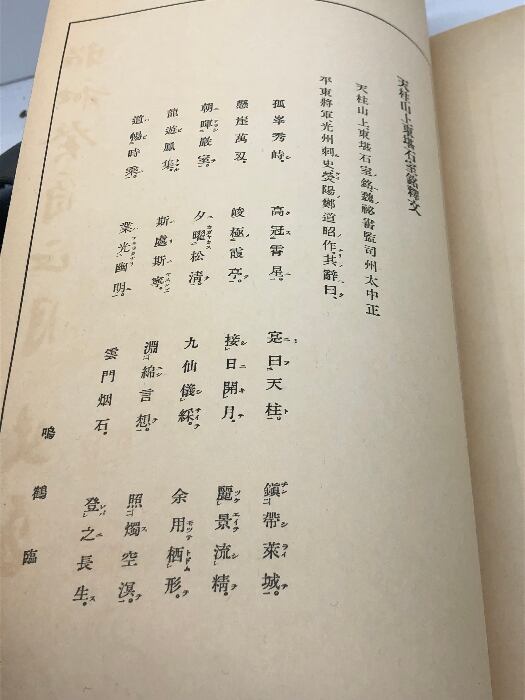 天柱山上東堪石室銘釋文
天柱山上東堪石室銘魏祕書監司州太中正
平東將軍光州刺史熒陽鄭道昭作其辭曰
孤峯秀峙。高冠霄星。寔曰天柱。鎭帶萊城。
懸崖萬忍。峻極霞亭。接日開月。麗景流精。
朝暉巖室。夕曜松清。九仙儀綵。余用栖形。
龍遊鳳集。斯處斯寧。淵綿言想。照燭空溟。
道暢時乘。業光幽明。雲門烟石。登之長生。
鳴鶴臨